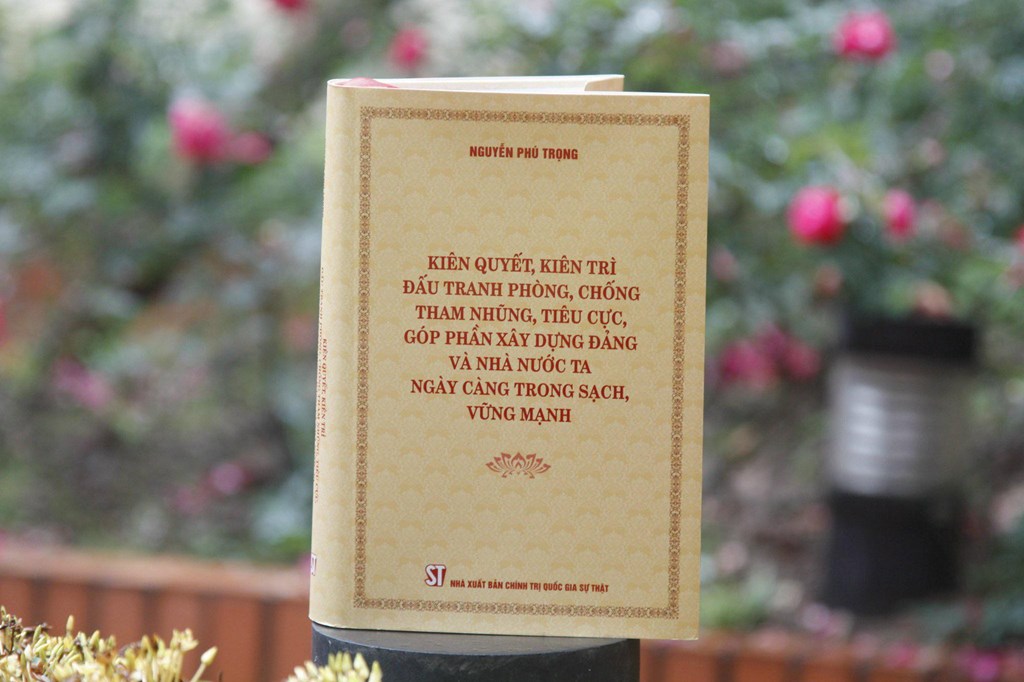 NGUYỄN PHÚ TRỌNG
KIÊN QUYẾT, KIÊN TRÌ
ĐẤU TRANH PHÒNG, CHỐNG
THAM NHŨNG, TIÊU CỰC,
GÓP PHẦN XÂY DỰNG ĐẢNG
VÀ NHÀ NƯỚC TA
NGÀY CÀNG TRONG SẠCH,
VỮNG MẠNH
ST NHÀ XUẤT BẢN CHÍNH TRỊ QUỐC GIA SỰ THẬT
KIÊN QUYẾT, KIÊN TRÌ